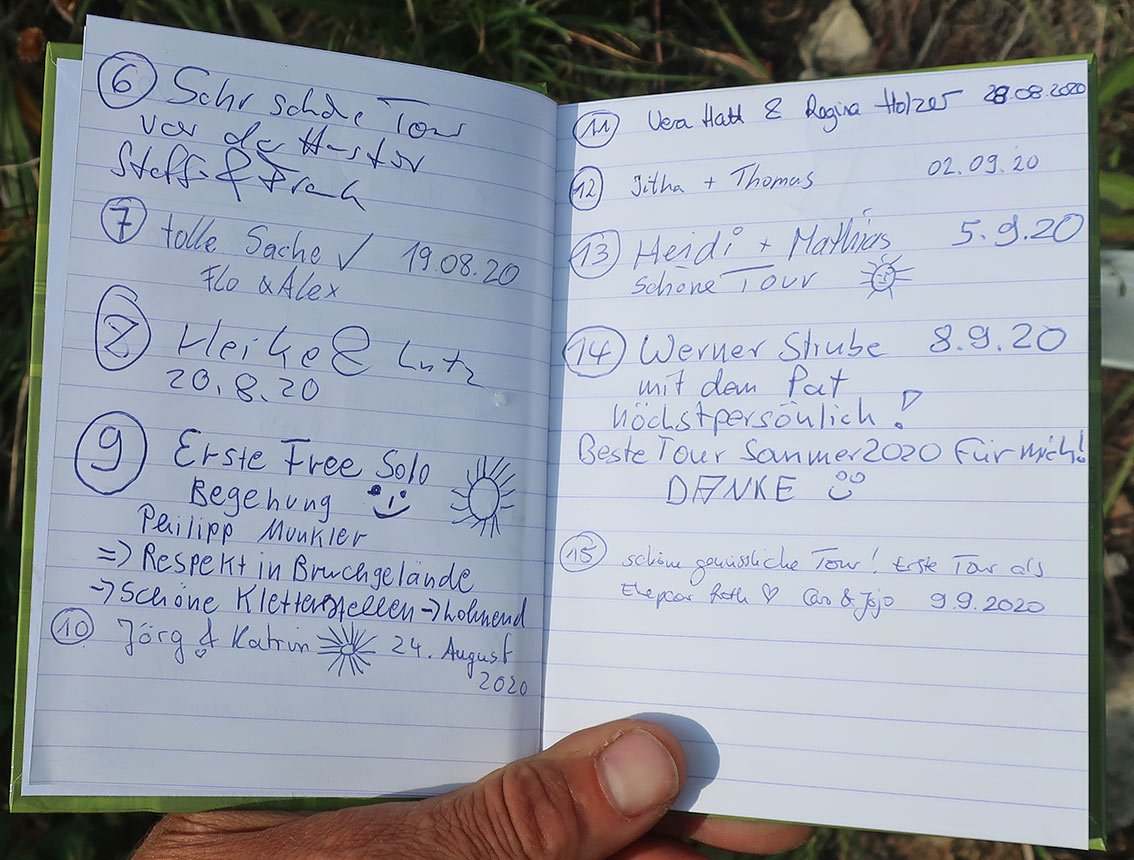 6 Sehr schöne Tour
vor der Haustür
Steffi & Frank
7 tolle Sache ✓ 19.08.20
Flo & Alex
8 Heike & Lutz
20.8.20
9 Erste Free Solo
Begehung
Philipp Munkler
=> Respekt in Bruchgelände
-> Schöne Kletterstellen -> Lohnend
10 Jörg & Katrin 24. August
2020
11 Vera Hatt & Regina Holzer 28.08.2020
12 + Thomas 02.09.20
13 Heidi + Mathias 5.9.20
Schöne Tour
14 Werner Strube 8.9.20
mit dem Pat
höchstpersönlich!
Beste Tour Sommer 2020 Für mich!
DANKE
15 schöne genüssliche Tour! Erste Tour als
Ehepaar ♡ Caro & Jojo 9.9.2020